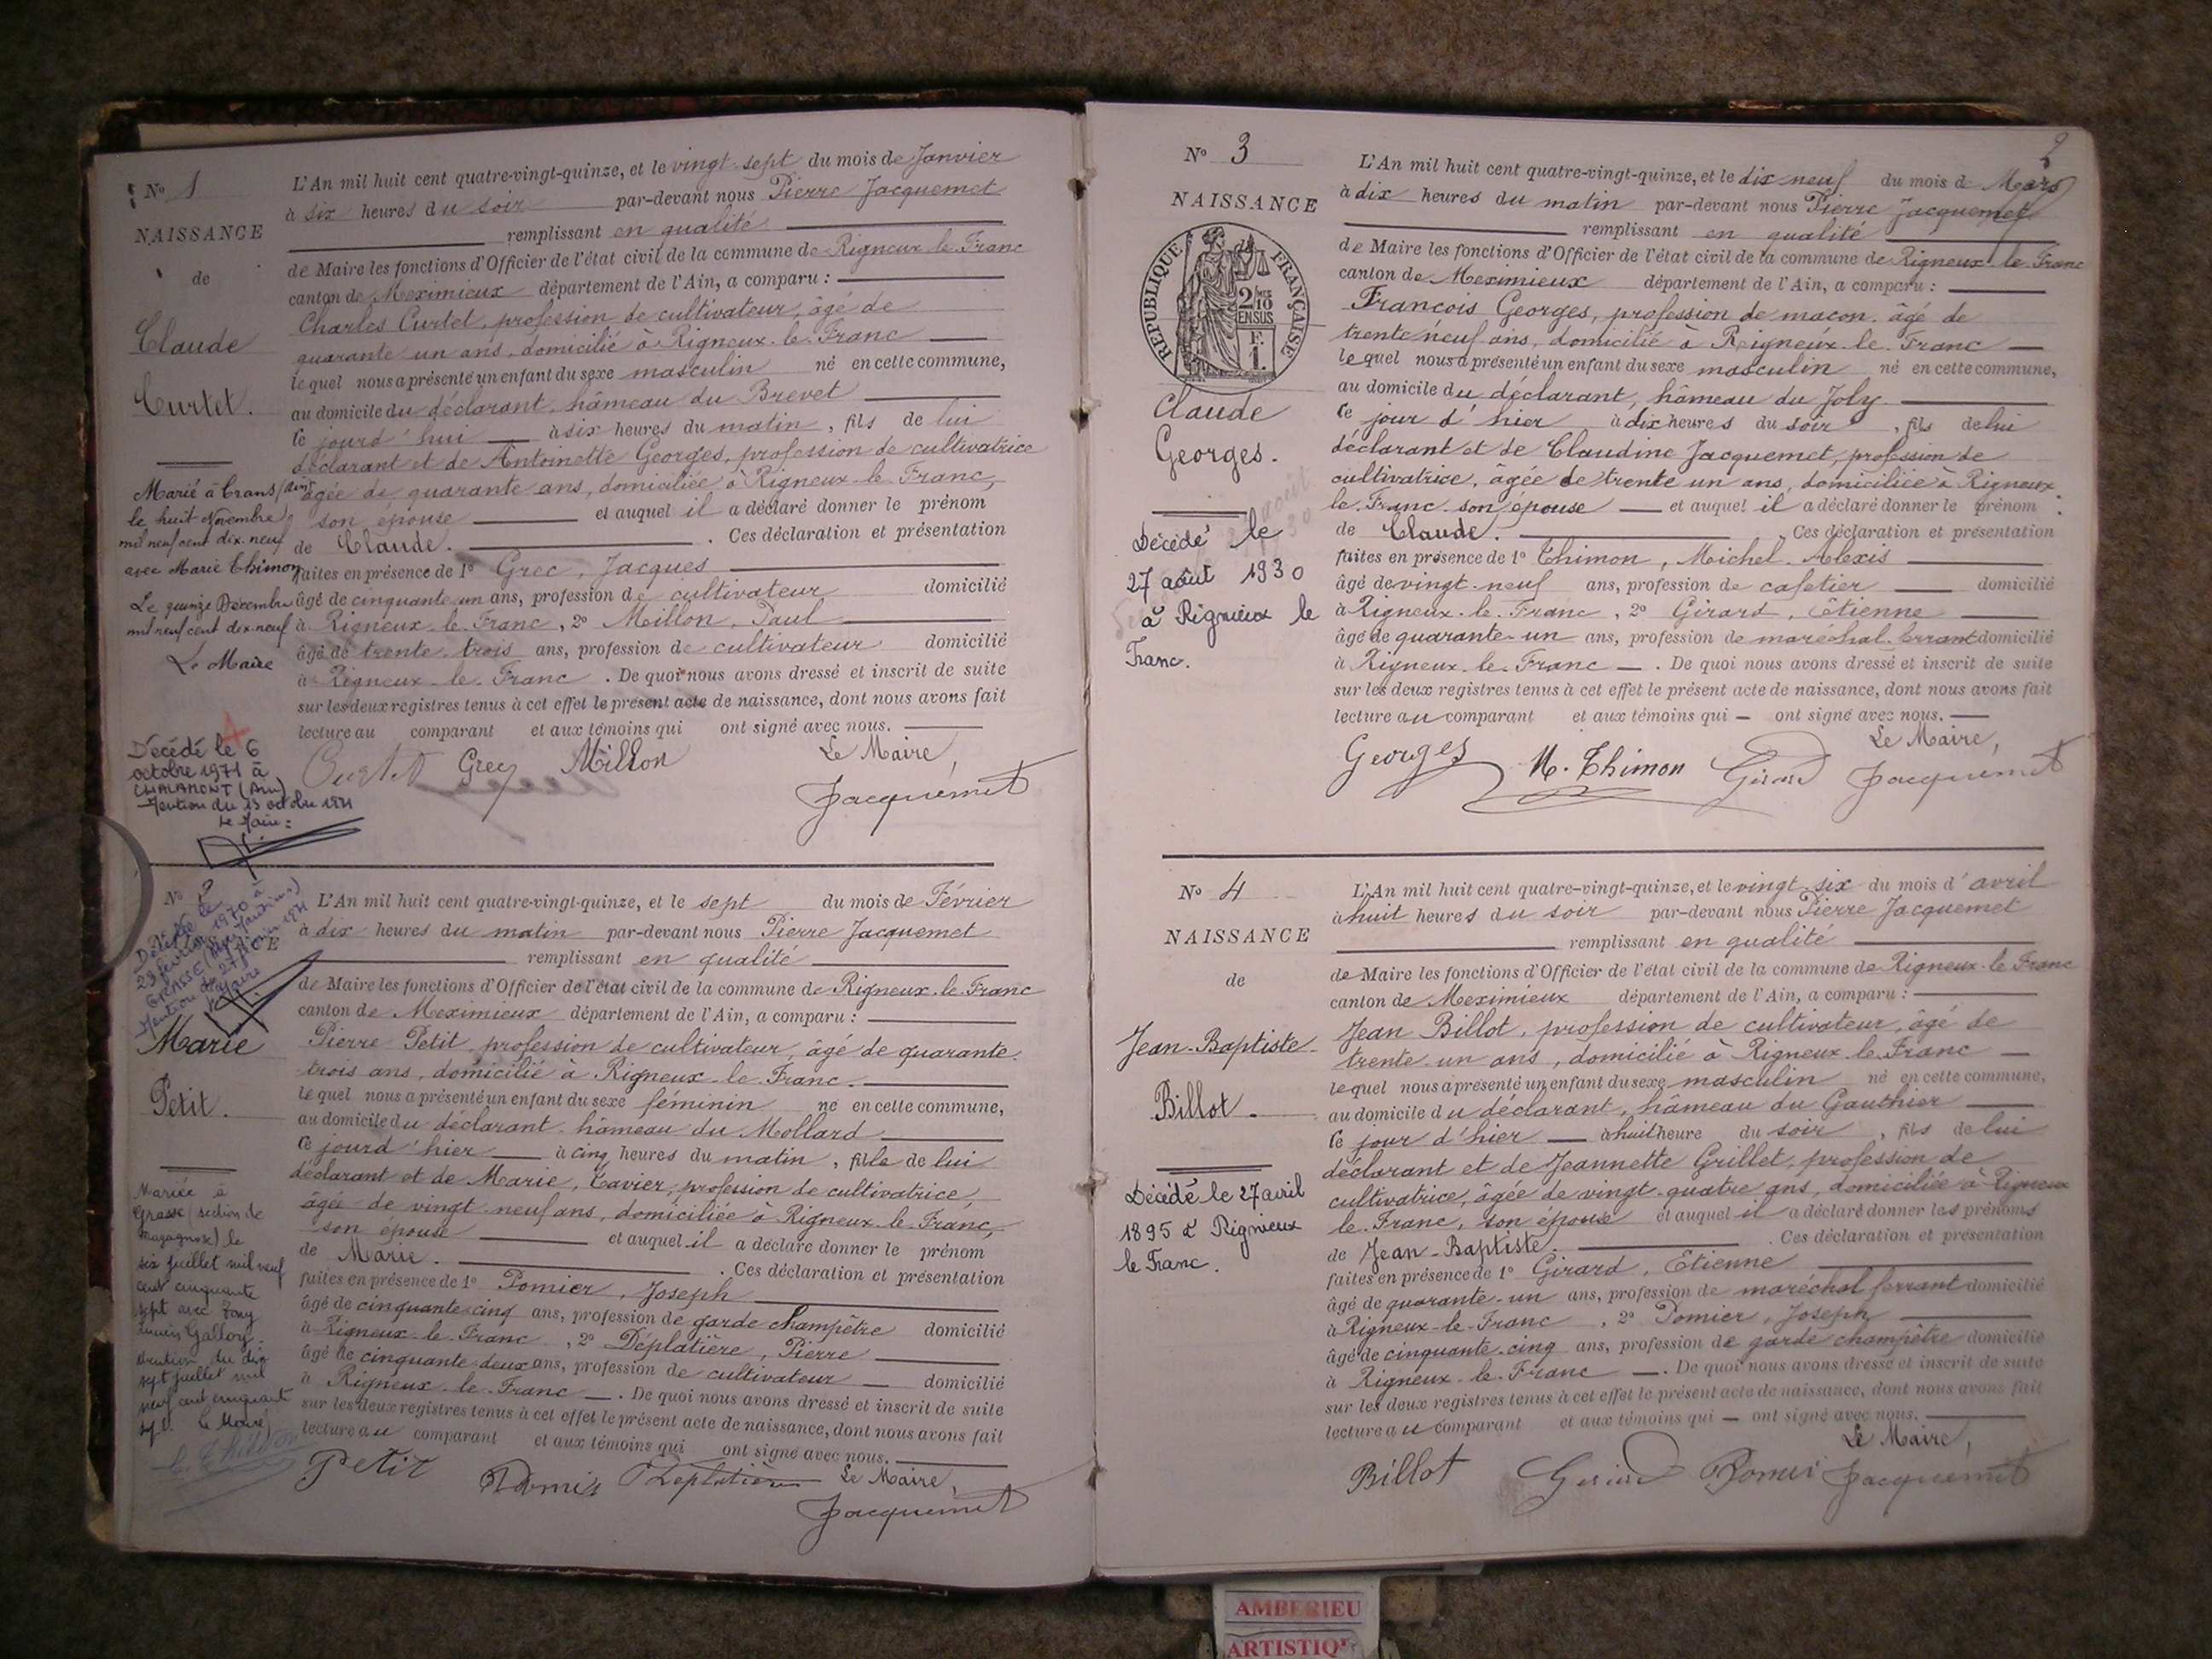 N° 1
NAISSANCE
de
Claude
Curtet.
L'An mil huit cent quatre-vingt-quinze, et le vingt-sept du mois de Janvier
à six heures du soir par-devant nous Pierre Jacquemet
remplissant en qualité
de Maire les fonctions d'Officier de l'état civil de la commune de Rigneux-le-Franc
canton de Meximieux département de l'Ain, a comparu :
Charles Curtet, profession de cultivateur, âgé de
quarante un ans, domicilié à Rigneux-le-Franc
lequel nous a présenté un enfant du sexe masculin né en cette commune,
au domicile du déclarant, hâmeau du Brevet
ce jourd'hui à six heures du matin, fils de lui
déclarant et de Antoinette Georges, profession de cultivatrice
âgée de quarante ans, domiciliée à Rigneux-le-Franc,
son épouse et auquel il a déclaré donner le prénom
de Claude. Ces déclaration et présentation
faites en présence de 1° Grec, Jacques
âgé de cinquante un ans, profession de cultivateur domicilié
à Rigneux-le-Franc, 2° Millon, Paul
âgé de trente-trois ans, profession de cultivateur domicilié
à Rigneux-le-Franc. De quoi nous avons dressé et inscrit de suite
sur les deux registres tenus à cet effet le présent acte de naissance, dont nous avons fait
lecture au comparant et aux témoins qui ont signé avec nous.
Curtet Grec Millon Le Maire,
Jacquemet
Marié à Crans (Ain)
le huit Novembre
mil neuf cent dix-neuf
avec Marie Thimon
Le quinze Décembre
mil neuf cent dix-neuf
Le Maire
Décédé le 6
octobre 1971 à
CHALAMONT (Ain)
Mention du 13 octobre 1971
Le Maire :
N° 2
NAISSANCE
Décédée le
23 février 1970 à
GRASSE (Alpes Maritimes)
Mention du 27
Le Maire
Marie
Petit.
L'An mil huit cent quatre-vingt-quinze, et le sept du mois de Février
à dix heures du matin par-devant nous Pierre Jacquemet
remplissant en qualité
de Maire les fonctions d'Officier de l'état civil de la commune de Rigneux-le-Franc
canton de Meximieux département de l'Ain, a comparu :
Pierre Petit, profession de cultivateur, âgé de quarante-
trois ans, domicilié à Rigneux-le-Franc.
lequel nous a présenté un enfant du sexe féminin né en cette commune,
au domicile du déclarant, hâmeau du Mollard
ce jourd'hier à cinq heures du matin, fille de lui
déclarant et de Marie, Tavier, profession de cultivatrice,
âgée de vingt-neuf ans, domiciliée à Rigneux-le-Franc,
son épouse et auquel il a déclaré donner le prénom
de Marie. Ces déclaration et présentation
faites en présence de 1° Pomier, Joseph
âgé de cinquante-cinq ans, profession de garde champêtre domicilié
à Rigneux-le-Franc, 2° Déplatière, Pierre
âgé de cinquante-deux ans, profession de cultivateur domicilié
à Rigneux-le-Franc. De quoi nous avons dressé et inscrit de suite
sur les deux registres tenus à cet effet le présent acte de naissance, dont nous avons fait
lecture au comparant et aux témoins qui ont signé avec nous.
Petit Pomier Déplatière Le Maire,
Jacquemet
Mariée à
Grasse (section de
Magagnosc) le
six juillet mil neuf
cent cinquante
sept avec Tony
Gallony.
Mention du dix
sept juillet mil
neuf cent cinquante
sept. Le Maire
2
N° 3
NAISSANCE
REPUBLIQUE FRANÇAISE
2/10 EN SUS
F. 1.
Claude
Georges.
Décédé le
27 août 1930
à Rignieux le
Franc.
L'An mil huit cent quatre-vingt-quinze, et le dix-neuf du mois de Mars
à dix heures du matin par-devant nous Pierre Jacquemet
remplissant en qualité
de Maire les fonctions d'Officier de l'état civil de la commune de Rigneux-le-Franc
canton de Meximieux département de l'Ain, a comparu :
Francois Georges, profession de macon, âgé de
trente neuf ans, domicilié à Reigneux-le-Franc
lequel nous a présenté un enfant du sexe masculin né en cette commune,
au domicile du déclarant, hâmeau du Joly
ce jour d'hier à dix heures du soir, fils de lui
déclarant et de Claudine Jacquemet, profession de
cultivatrice, âgée de trente un ans, domiciliée à Rigneux
le-Franc son épouse et auquel il a déclaré donner le prénom
de Claude. Ces déclaration et présentation
faites en présence de 1° Thimon, Michel-Alexis
âgé de vingt-neuf ans, profession de cafetier domicilié
à Rigneux-le-Franc, 2° Girard, Etienne
âgé de quarante-un ans, profession de maréchal-ferrant domicilié
à Rigneux-le-Franc. De quoi nous avons dressé et inscrit de suite
sur les deux registres tenus à cet effet le présent acte de naissance, dont nous avons fait
lecture au comparant et aux témoins qui ont signé avec nous.
Le Maire,
Georges M. Thimon Girard Jacquemet
N° 4
NAISSANCE
de
Jean-Baptiste
Billot.
Décédé le 27 avril
1895 à Rignieux
le Franc.
L'An mil huit cent quatre-vingt-quinze, et le vingt-six du mois d'avril
à huit heures du soir par-devant nous Pierre Jacquemet
remplissant en qualité
de Maire les fonctions d'Officier de l'état civil de la commune de Rigneux-le-Franc
canton de Meximieux département de l'Ain, a comparu :
Jean Billot, profession de cultivateur, âgé de
trente-un ans, domicilié à Rigneux-le-Franc
lequel nous a présenté un enfant du sexe masculin né en cette commune,
au domicile du déclarant, hâmeau du Gauthier
ce jour d'hier à huit heure du soir, fils de lui
déclarant et de Jeannette Grillet, profession de
cultivatrice, âgée de vingt-quatre ans, domiciliée à Rigneux
le-Franc, son épouse et auquel il a déclaré donner les prénoms
de Jean-Baptiste. Ces déclaration et présentation
faites en présence de 1° Girard, Etienne
âgé de quarante-un ans, profession de maréchal ferrant domicilié
à Rigneux-le-Franc, 2° Pomier, Joseph
âgé de cinquante-cinq ans, profession de garde champêtre domicilié
à Rigneux-le-Franc. De quoi nous avons dressé et inscrit de suite
sur les deux registres tenus à cet effet le présent acte de naissance, dont nous avons fait
lecture au comparant et aux témoins qui ont signé avec nous.
Le Maire,
Billot Girard Pomier Jacquemet
AMBERIEU
ARTISTIQUE